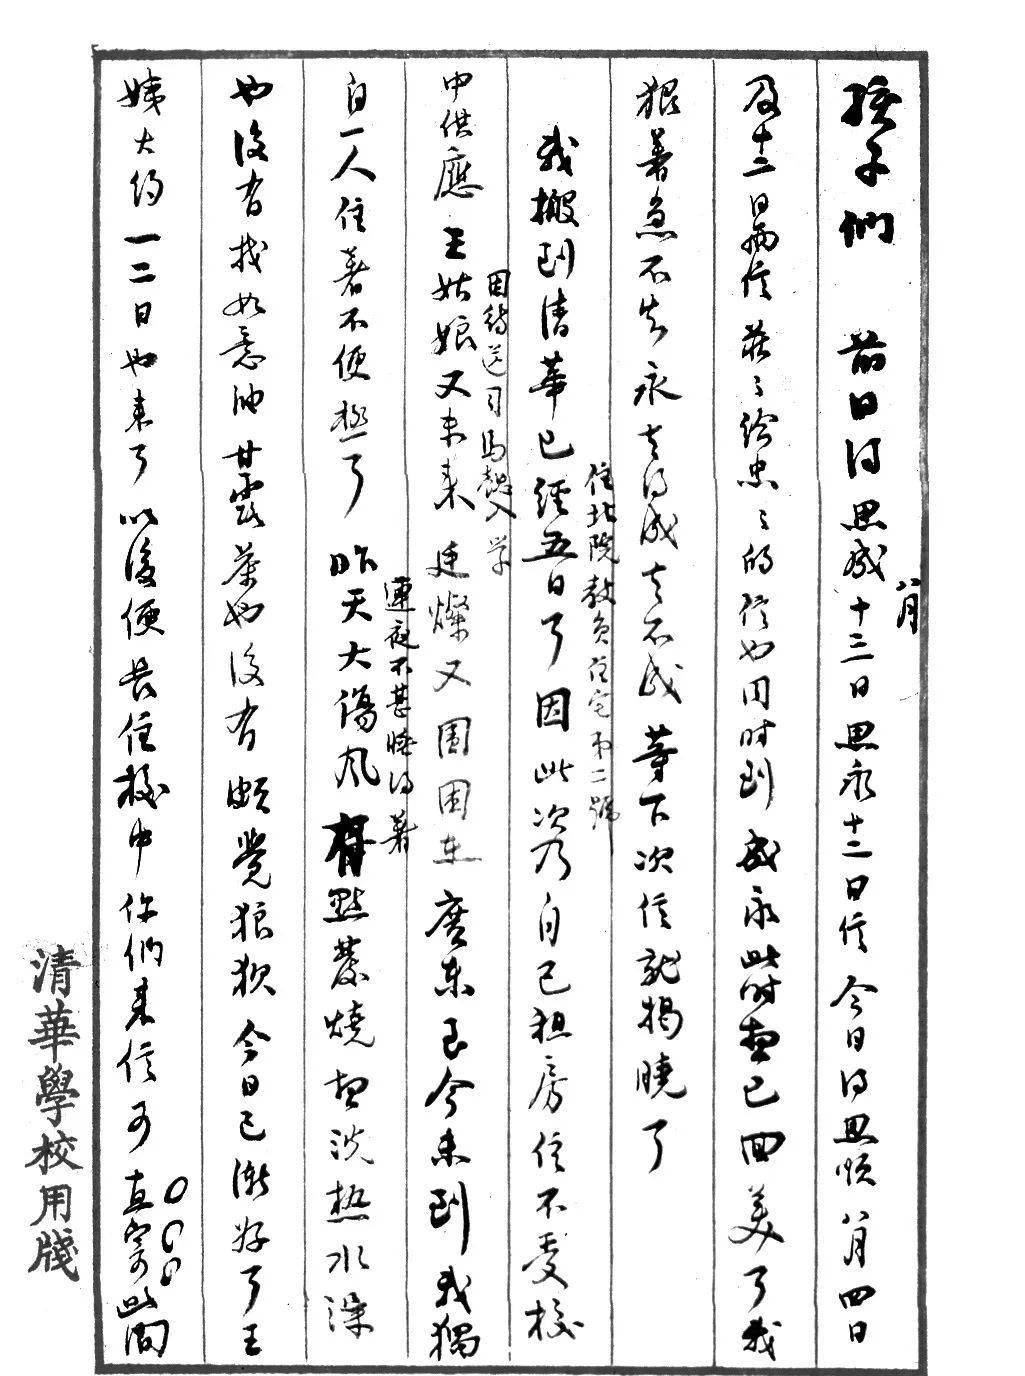 孩子們　前日得思成十三日思永十二日信今日得思順八月四日
八月
及十二日兩信莊々給忠々的信也同时到成永此时想已回美了我
狠著急不知永去得成去不成等下次信就揭曉了
我搬到清華已經五日了因此次乃自己租房住不受校
住北院教員住宅第二號
中供應王姑娘又未来廷燦又圍困在廣東至今未到我獨
因待送司馬懿入学
自一人住著不便極了昨天大傷风有點發燒想洗热水澡
連夜不甚睡得著
也没有找如意油甘露茶也没有頗覺狼狽今日已漸好了王
姨大约一二日也来了以後便長住校中你們来信可直寄此間
清華學校用牋